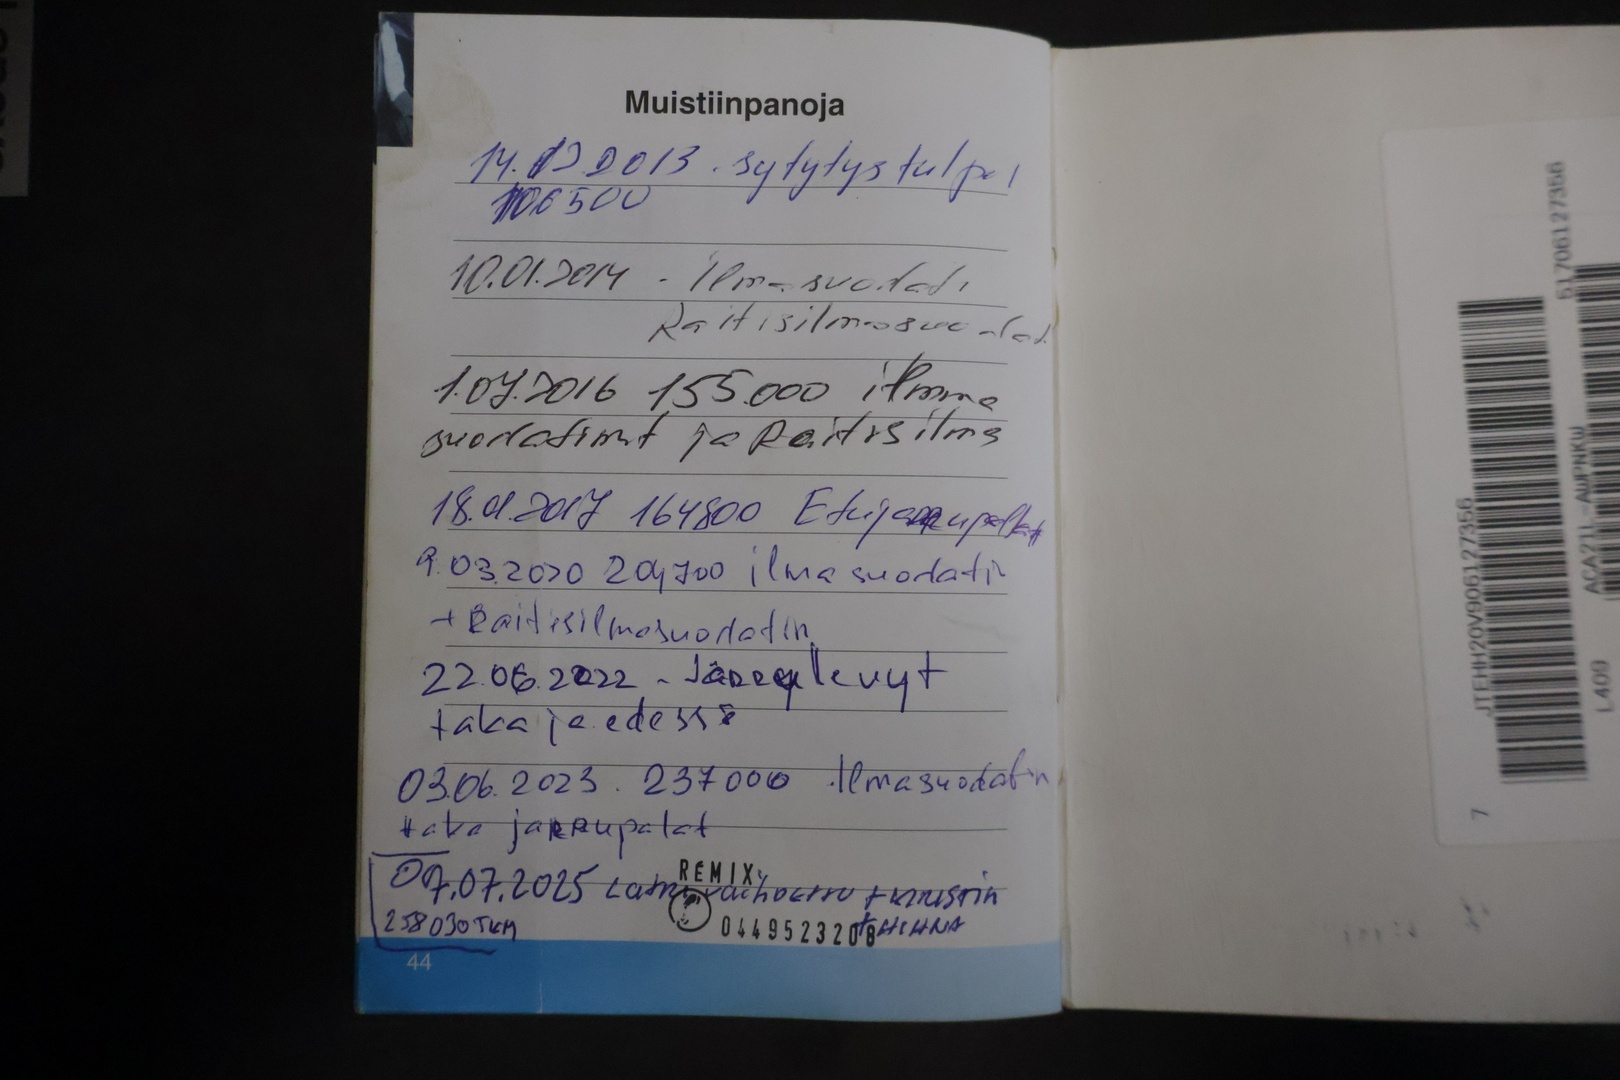 Muistiinpanoja
14.12.2013 . sytytystulpa 1
106500
10.01.2014 - Ilmasuodati
Raitisilmasuodat.
1.07.2016 155.000 ilmma
suodatimt ja Raitisilma
18.01.2017 164800 Etujarrupalkat
9.03.2020 204700 ilmasuodatin
+ Raitisilmasuodatin
22.06.2022 - Jarrulevyt
taka ja edessä
03.06.2023. 237000 Ilmasuodatin
taka jarrupalat
07.07.2025 vaihdettu + kiristin
REMIX
258030TKM
0449523208
+HIHNA
44
JTEHH20V906127356
61706127356
ACA21L-AWPNKW
L409
7